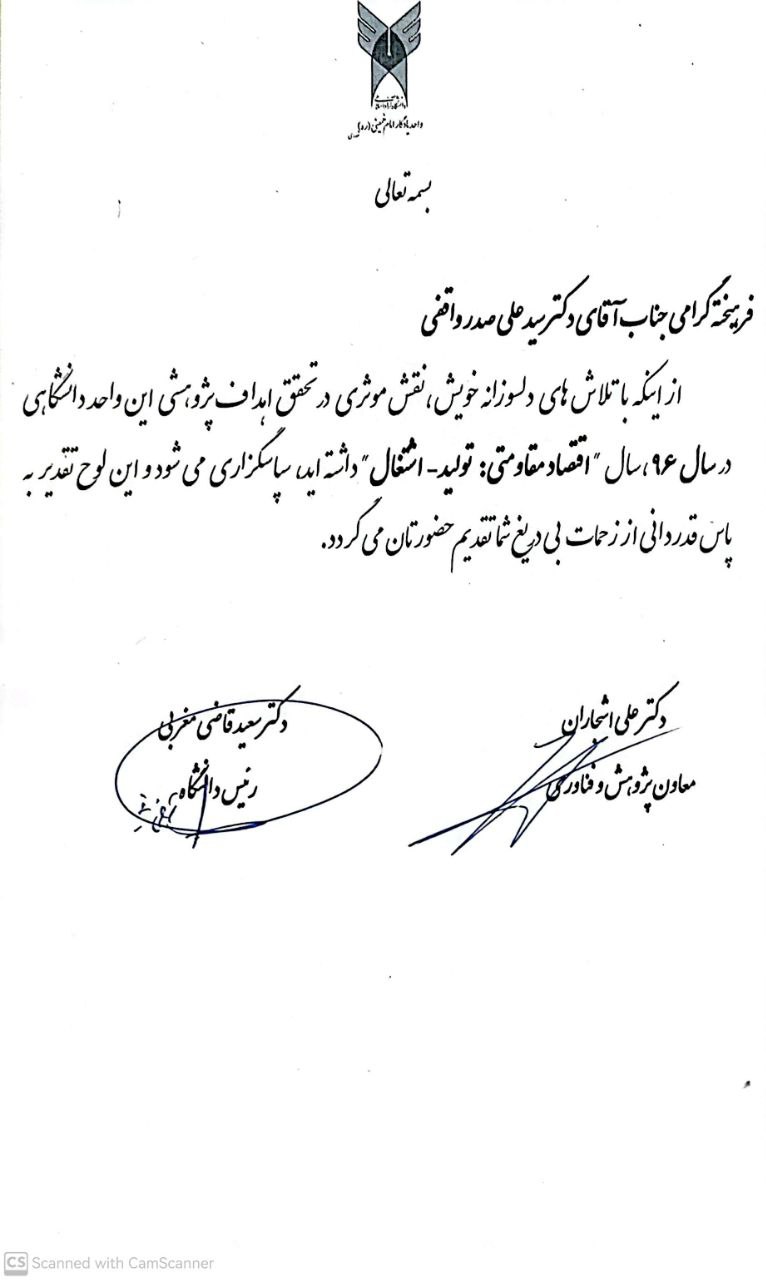 دانشگاه آزاد اسلامی
واحد یادگار امام خمینی (ره)
بسمه تعالی
فرهیخته گرامی جناب آقای دکتر سید علی صدر واقفی
از اینکه با تلاش های دلسوزانه خویش، نقش موثری در تحقق اهداف پژوهشی این واحد دانشگاهی
در سال ۹۶، سال "اقتصاد مقاومتی: تولید- اشتغال" داشته اید، سپاسگزاری می شود و این لوح تقدیر به
پاس قدردانی از زحمات بی دریغ شما تقدیم حضورتان می گردد.
دکتر علی اشجاران
معاون پژوهش و فناوری
دکتر سعید قاضی مغربی
رئیس دانشگاه
CS Scanned with CamScanner